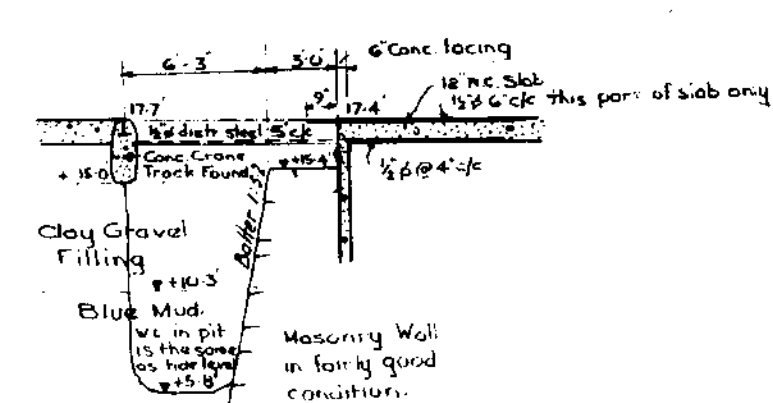 6'-3"
3'-0"
6" Conc. facing
12" R.C. Slab
½"ϕ 6" c/c this part of slab only
9"
17.7'
17.4'
½"ϕ distr steel 5" c/c
Conc. Crane
Track Found.
+15.4
½"ϕ @ 4" c/c
+ 15.0
Batter 1:5
Clay Gravel
Filling
+10.3'
Blue Mud.
W.L in pit
is the same
as tide level
+5.8'
Masonry Wall
in fairly good
condition.